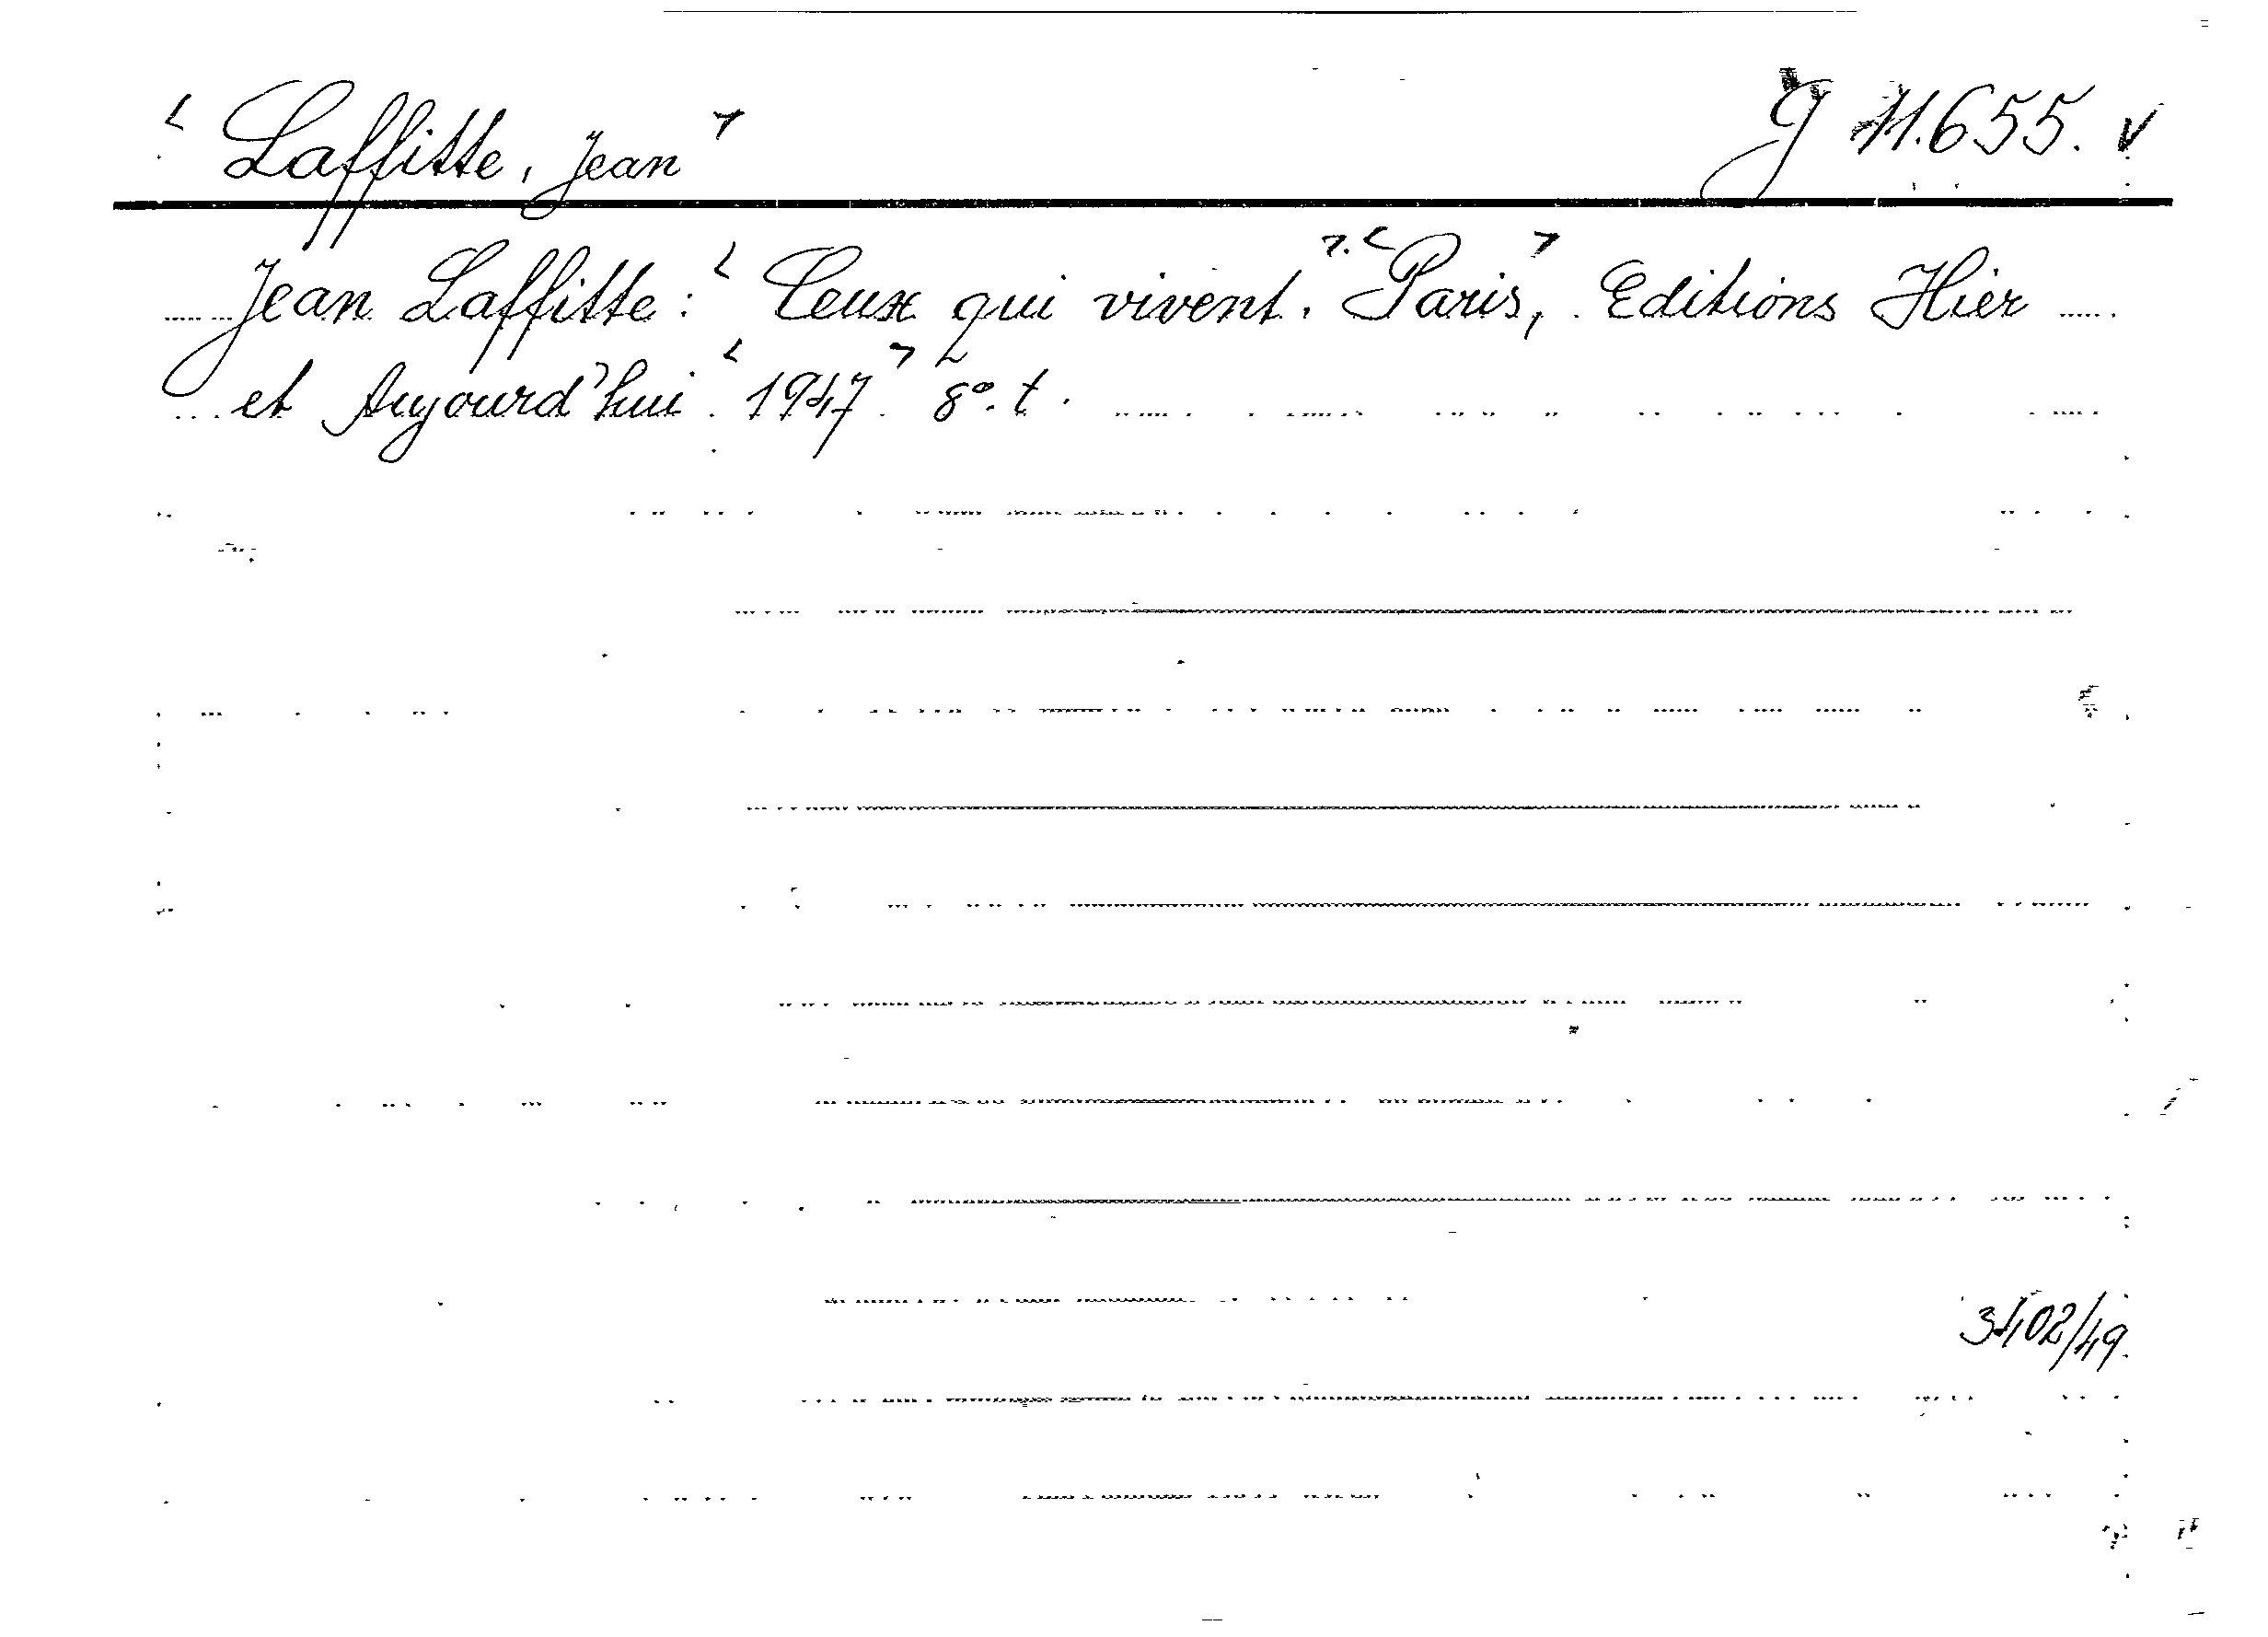 < Laffitte, Jean > J 11.655. v
Jean Laffitte: < Ceux qui vivent. >. < Paris >, Editions Hier
et Aujourd'hui < 1947 > 8°. t.
3402/49.